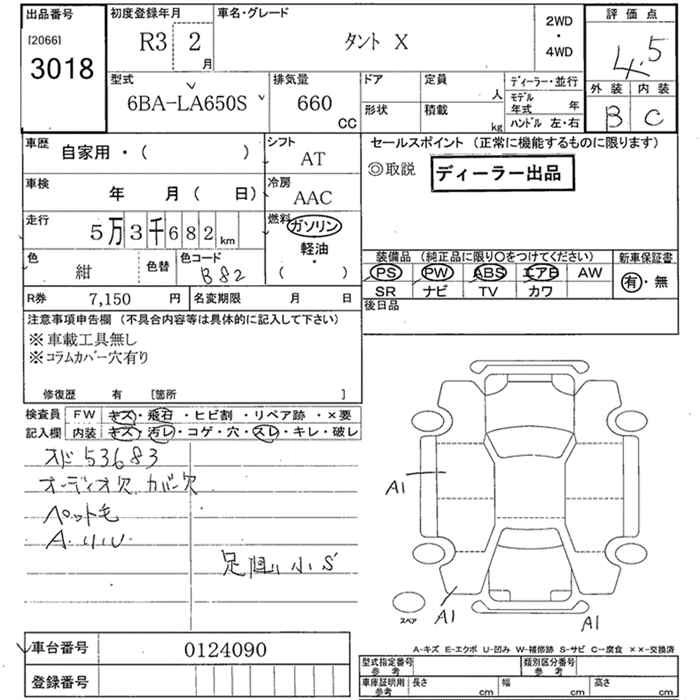 出品番号
[2066]
3018
初度登録年月
R3 2 月
車名・グレード
タント X
2WD
・
4WD
評価点
4.5
外装 内装
B C
型式
6BA-LA650S
排気量
660
CC
ドア
定員
人
形状
積載
kg
ディーラー・並行
モデル年式 年
ハンドル 左・右
車歴
自家用・( )
シフト
AT
セールスポイント (正常に機能するものに限ります)
◎取説 ディーラー出品
車検
年 月( 日)
冷房
AAC
走行
5万3千682km
燃料
ガソリン
軽油・
( )
色
紺
色替
色コード
B82
装備品 (純正品に限り○をつけてください)
新車保証書
PS PW ABS エアB AW
SR ナビ TV カワ
有・無
R券 7,150 円
名変期限 月 日
後日品
注意事項申告欄 (不具合内容等は具体的に記入して下さい)
※車載工具無し
※コラムカバー穴有り
修復歴 有 [箇所 ]
検査員
記入欄
FW キズ・飛石・ヒビ割・リペア跡・×要
内装 キズ・汚レ・コゲ・穴・スレ・キレ・破レ
スド 53683
オーディオ欠 カバー欠
ペット毛
足回り小S
A1
A1
A1
スペア
A-キズ E-エクボ U-凹み W-補修跡 S-サビ C-腐食 ××-交換済
車台番号 0124090
登録番号
型式指定番号
参考
類別区分番号
参考
車庫証明用
参考
長さ cm 幅 cm 高さ cm